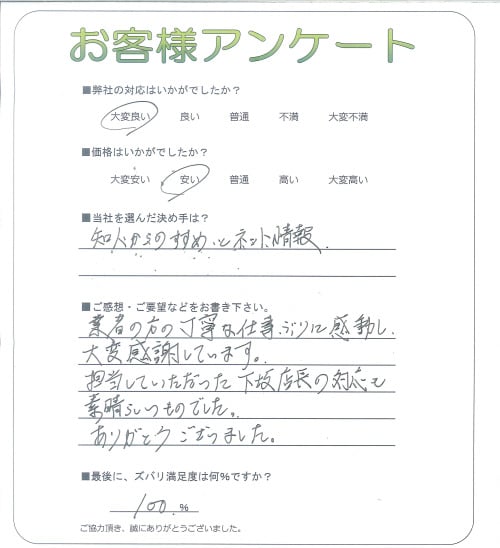 お客様アンケート
■弊社の対応はいかがでしたか？
大変良い 良い 普通 不満 大変不満
■価格はいかがでしたか？
大変安い 安い 普通 高い 大変高い
■当社を選んだ決め手は？
知人からのすすめ、とネット情報
■ご感想・ご要望などをお書き下さい。
業者の方の丁寧な仕事ぶりに感動し、
大変感謝しています。
担当していただった下坂店長の対応も
素晴らしいつものでした。
ありがとうございました。
■最後に、ズバリ満足度は何％ですか？
100.％
ご協力頂き、誠にありがとうございました。